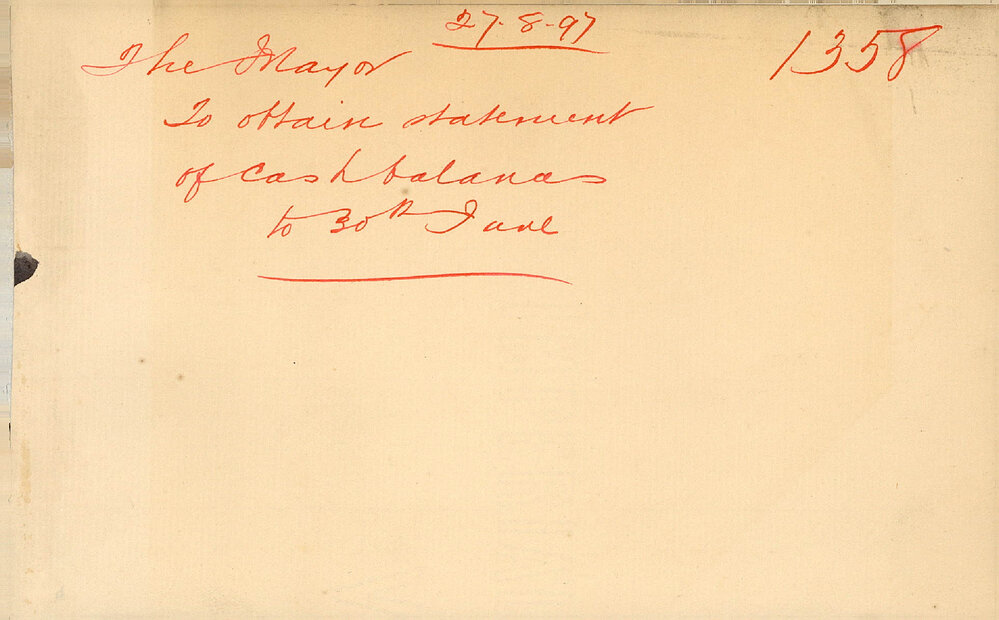 27-8-97
1358
The Mayor
To obtain statement
of Cash balances
to 30th June